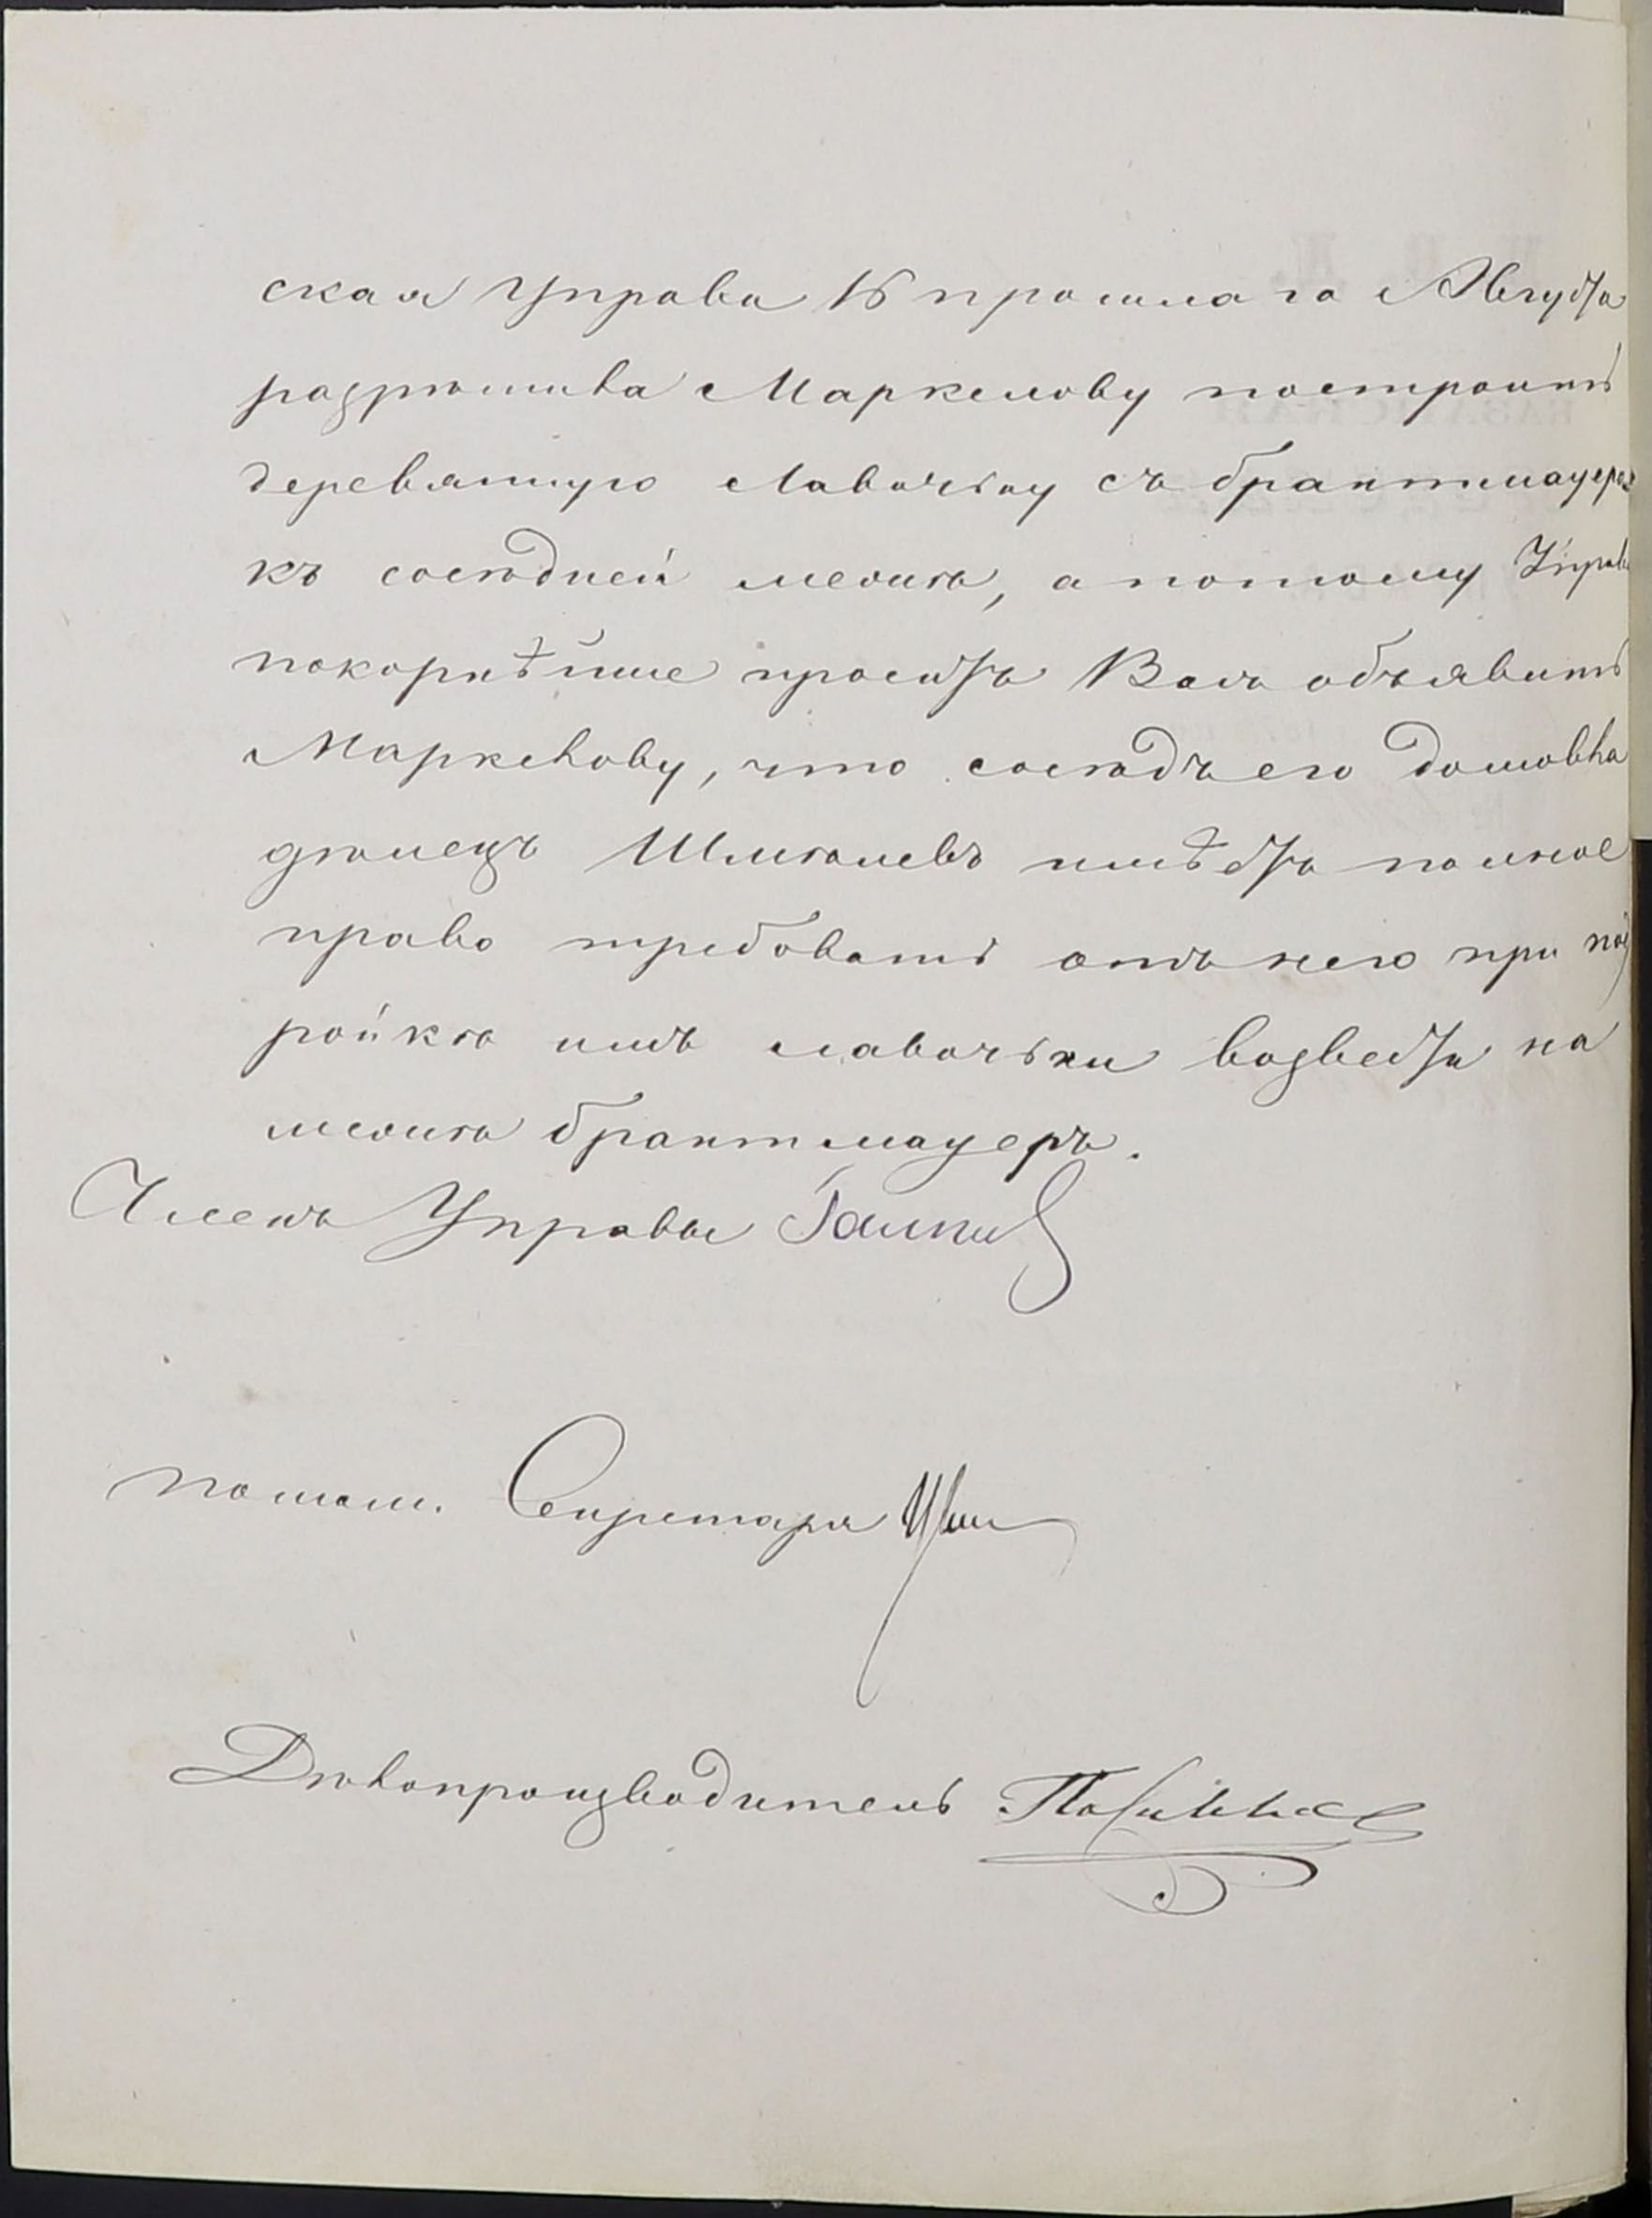 ская Управа 16 прошлаго Августа
разрѣшила Маркелову построить
деревянную лавочьку съ брантмауеромъ
къ сосѣдней межѣ, а потому Управа
покорнѣйше проситъ Васъ объявить
Маркелову, что сосѣдъ его домовла
дѣлецъ имѣетъ полное
право требовать отъ него при пост
ройкѣ имъ лавочьки возвести на
межѣ брантмауеръ.
Членъ Управы Галкинъ
помощ. Секретаря
Дѣлопроизводитель